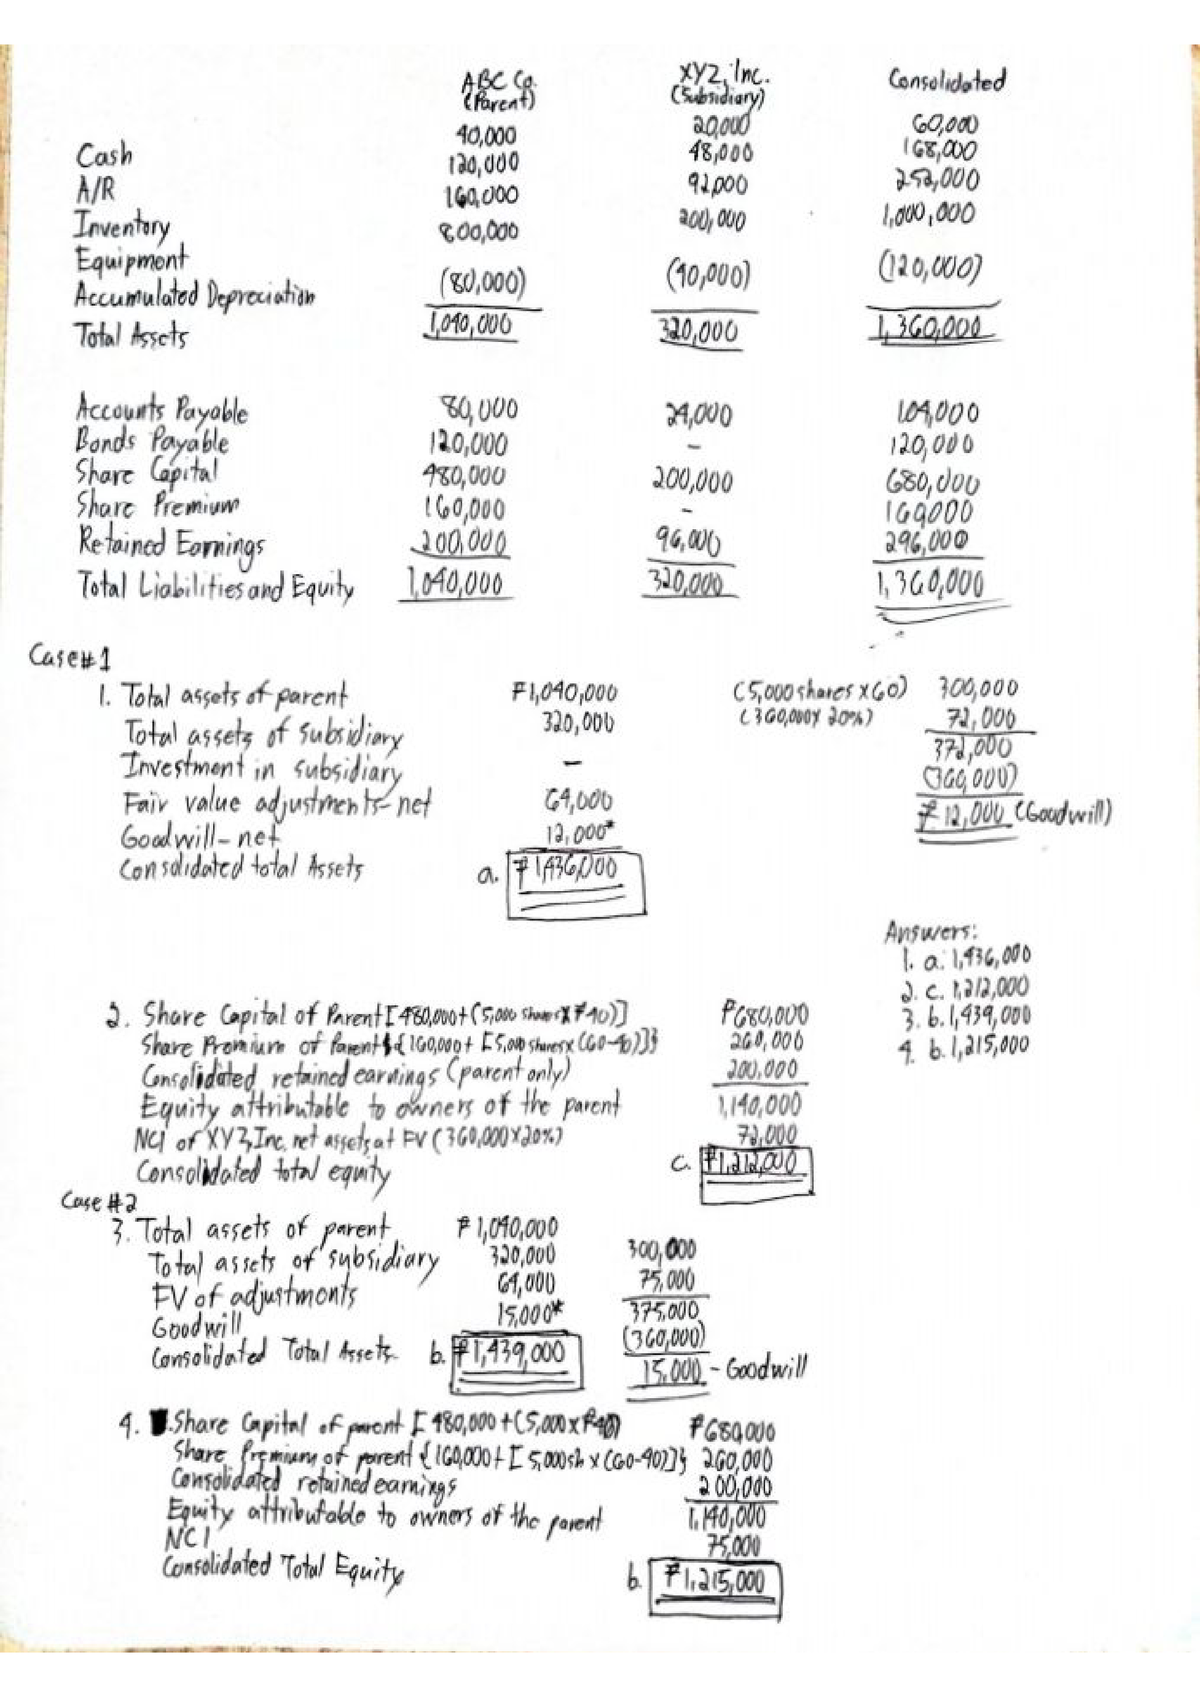 ABC Co. (Parent) XYZ, Inc. (Subsidiary) Consolidated
Cash 40,000 20,000 60,000
A/R 120,000 48,000 168,000
Inventory 160,000 92,000 252,000
Equipment 800,000 200,000 1,000,000
Accumulated Depreciation (80,000) (40,000) (120,000)
Total Assets 1,040,000 320,000 1,360,000
Accounts Payable 80,000 24,000 104,000
Bonds Payable 120,000 - 120,000
Share Capital 480,000 200,000 680,000
Share Premium 160,000 - 160,000
Retained Earnings 200,000 96,000 296,000
Total Liabilities and Equity 1,040,000 320,000 1,360,000
Case #1
1. Total assets of parent ₱1,040,000 (5,000 shares x 60) 300,000
Total assets of subsidiary 320,000 (360,000 x 20%) 72,000
Investment in subsidiary - 372,000
(360,000)
Fair value adjustments-net 64,000 ₱ 12,000 (Goodwill)
Goodwill-net 12,000*
Consolidated total Assets a. ₱1,436,000
Answers:
1. a. 1,436,000
2. c. 1,212,000
3. b. 1,439,000
4. b. 1,215,000
2. Share Capital of Parent [480,000+(5,000 shares x ₱40)] ₱680,000
Share Premium of Parent {160,000+ [5,000 shares x (60-40)]} 260,000
Consolidated retained earnings (parent only) 200,000
Equity attributable to owners of the parent 1,140,000
NCI of XYZ, Inc. net assets at FV (360,000 x 20%) 72,000
Consolidated total equity c. ₱1,212,000
Case #2
3. Total assets of parent ₱1,040,000
Total assets of subsidiary 320,000 300,000
FV of adjustments 64,000 75,000
Goodwill 15,000* 375,000
(360,000)
Consolidated Total Assets. b. ₱1,439,000 15,000 - Goodwill
4. Share Capital of parent [480,000 + (5,000 x ₱40) ₱680,000
Share Premium of parent {160,000+ [5,000sh x (60-40)]} 260,000
Consolidated retained earnings 200,000
Equity attributable to owners of the parent 1,140,000
NCI 75,000
Consolidated Total Equity b. ₱1,215,000